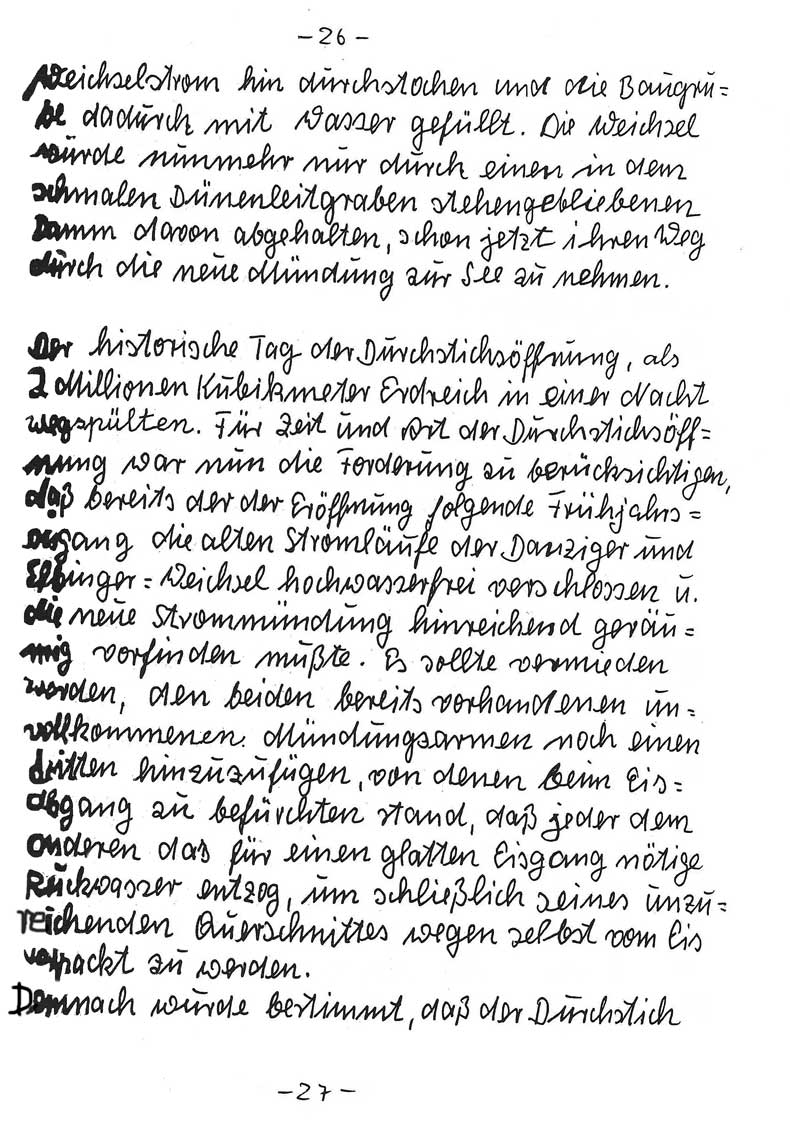 -26-
Weichselstrom hin durchstochen und die Baugru=
be dadurch mit Wasser gefüllt. Die Weichsel
würde nunmehr nur durch einen in dem
schmalen Dünenleitgraben stehengebliebenen
Damm davon abgehalten, schon jetzt ihren Weg
durch die neue Mündung zur See zu nehmen.
Der historische Tag der Durchstichsöffnung, als
2 Millionen Kubikmeter Erdreich in einer Nacht
wegspülten. Für Zeit und Art der Durchstichsöff=
nung war nun die Forderung zu berücksichtigen,
daß bereits der der Eröffnung folgende Frühjahrs=
eisgang die alten Stromläufe der Danziger und
Elbinger=Weichsel hochwasserfrei verschlossen u.
die neue Strommündung hinreichend geräu=
mig vorfinden mußte. Es sollte vermieden
werden, den beiden bereits vorhandenen un=
vollkommenen Mündungsarmen noch einen
dritten hinzuzufügen, von denen beim Eis=
abgang zu befürchten stand, daß jeder dem
anderen das für einen glatten Eisgang nötige
Rückwasser entzog, um schließlich seines unzu=
reichenden Querschnittes wegen selbst vom Eis
verpackt zu werden.
Demnach wurde bestimmt, daß der Durchstich
-27-